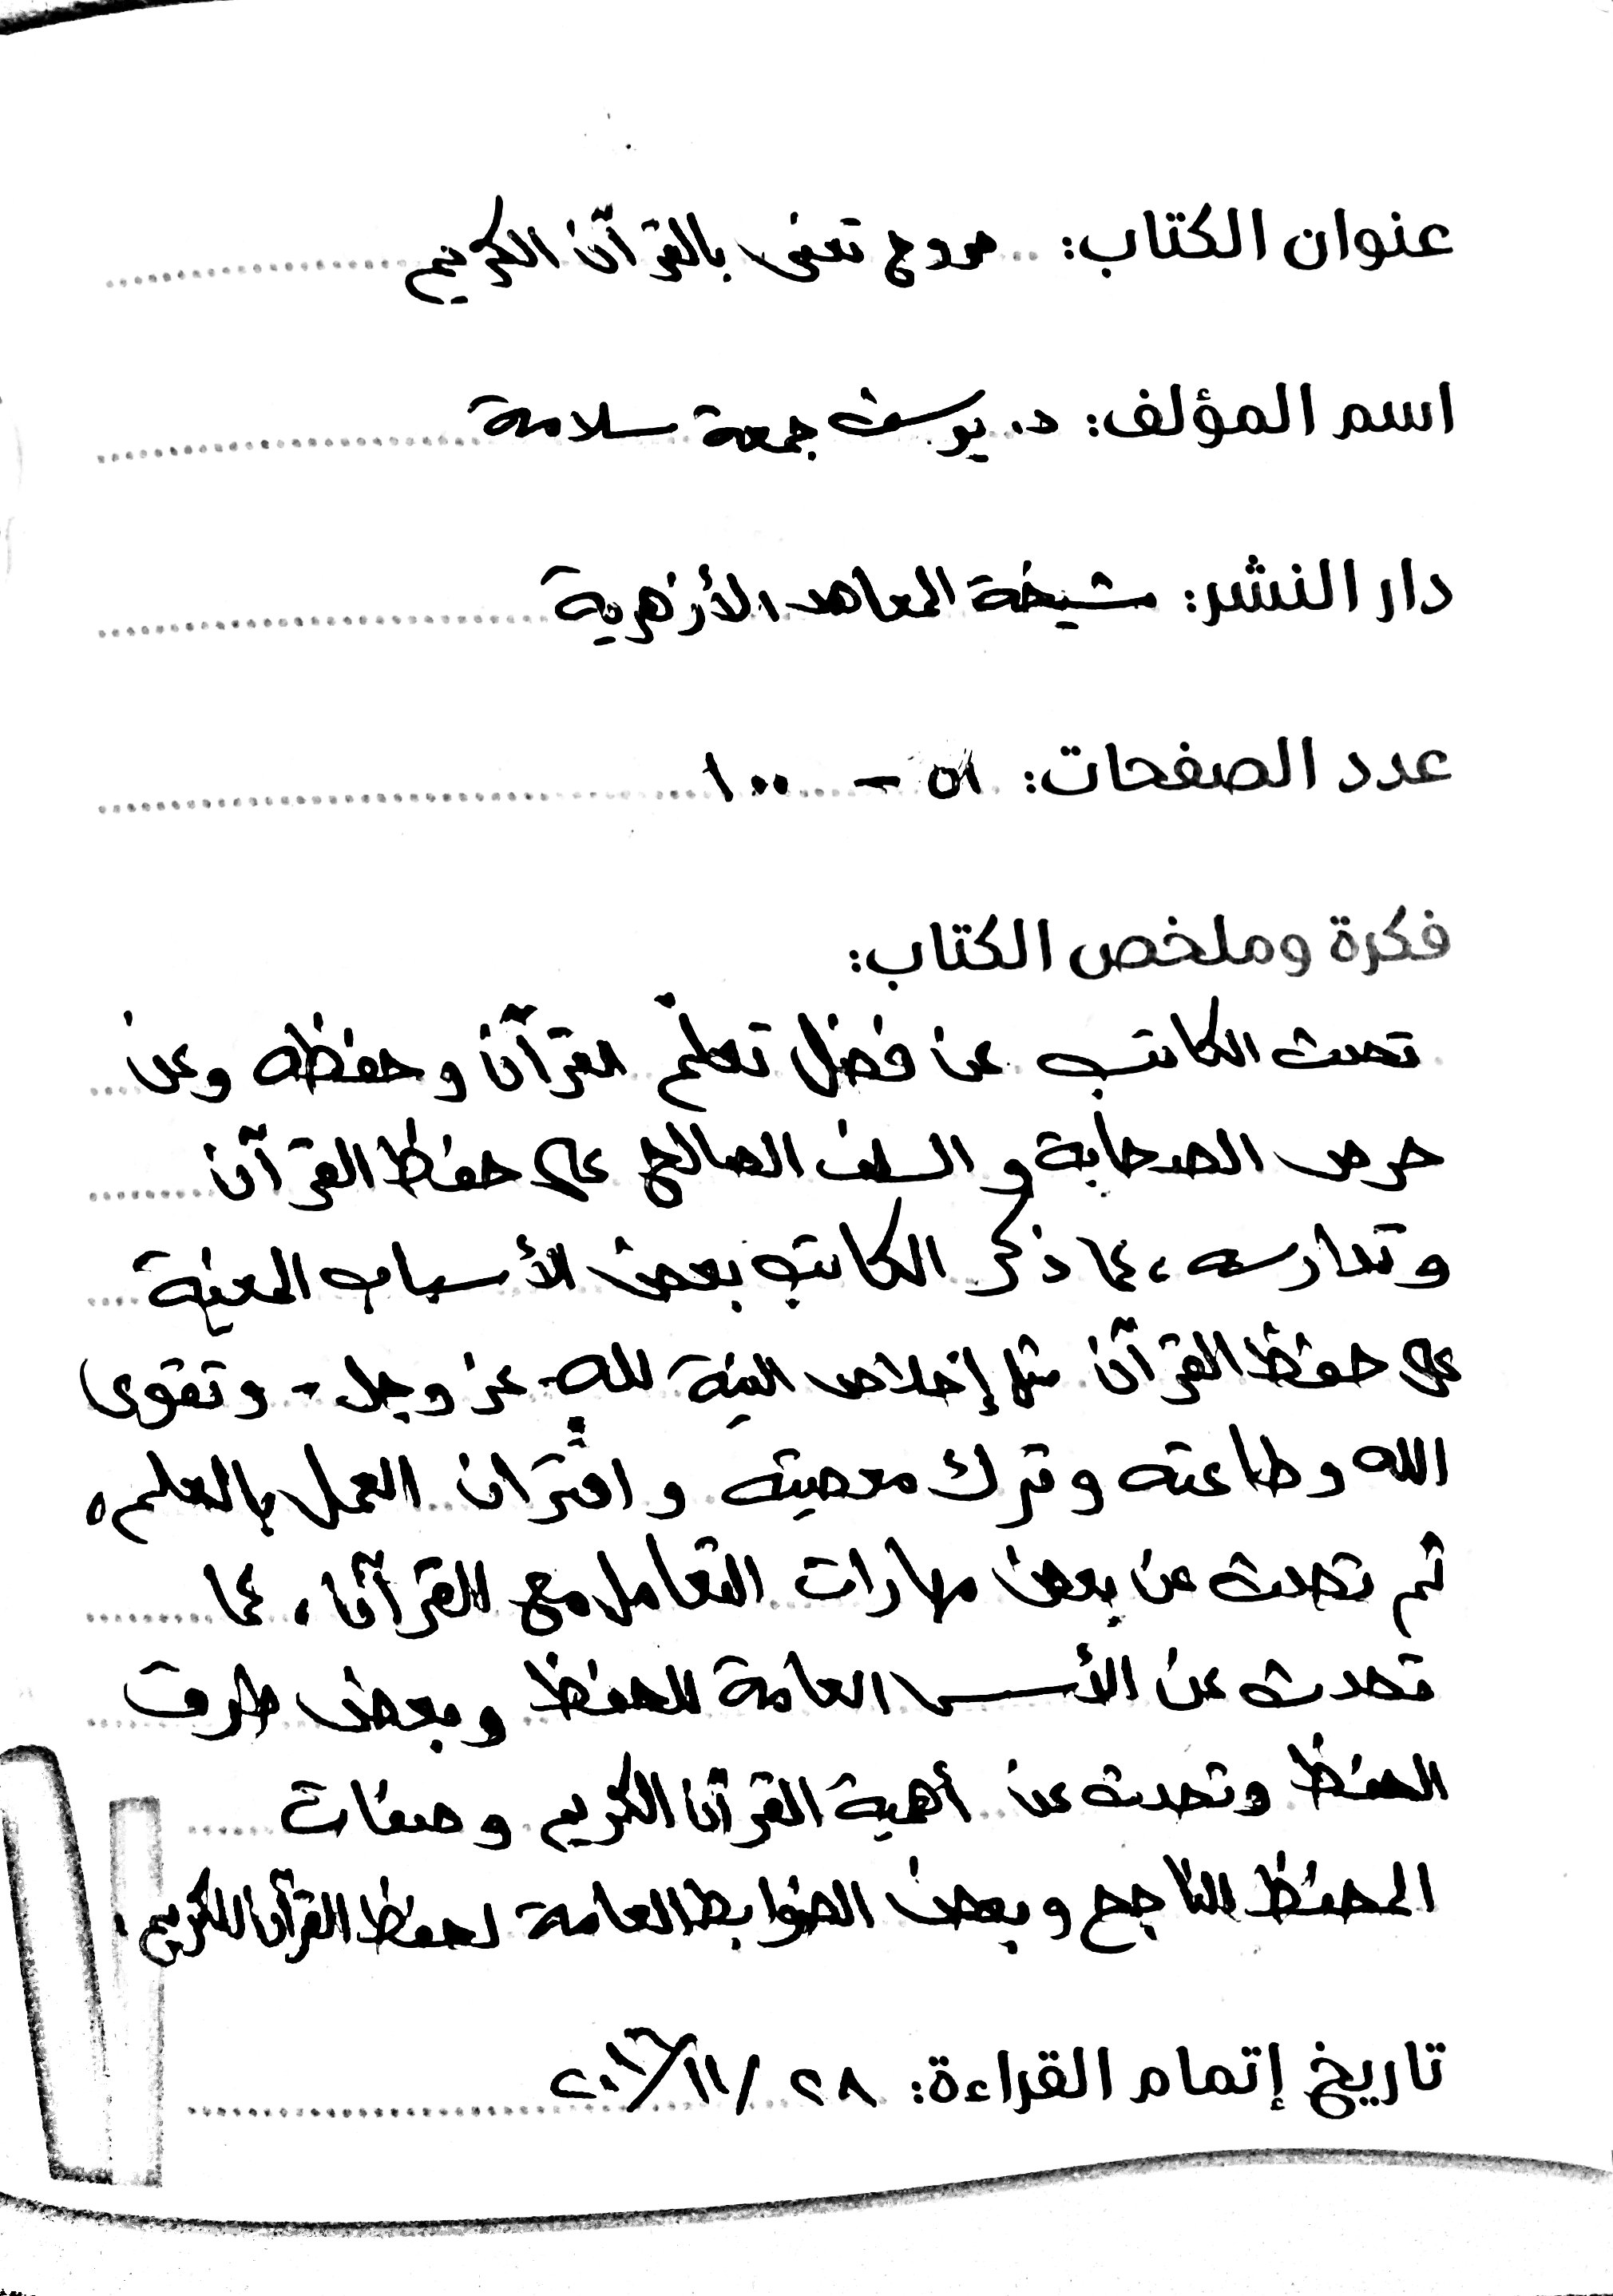 عنوان الكتاب: مروج تعنى بالقرآن الكريم
اسم المؤلف: د. يوسف جمعة سلامة
دار النشر: مشيخة المعاهد الأزهرية
عدد الصفحات: ٥١ - ١٠٠
فكرة وملخص الكتاب:
تحدث الكاتب عن فضل تعلّم القرآن وحفظه وعن
حرص الصحابة والسلف الصالح على حفظ القرآن
وتدارسه، كما ذكر الكاتب بعض الأسباب المعينة
على حفظ القرآن مثل إخلاص النية لله - عز وجل - وتقوى
الله وطاعته وترك معصيته واقتران العمل بالعلم،
ثم تحدث عن بعض مهارات التعامل مع القرآن، كما
تحدث عن الأسس العامة للحفظ وبعض طرق
الحفظ وتحدث عن أهمية القرآن الكريم وصفات
المحفظ الناجح وبعض الضوابط العامة لحفظ القرآن الكريم.
تاريخ إتمام القراءة: ٢٨/١١/٢٠١٦